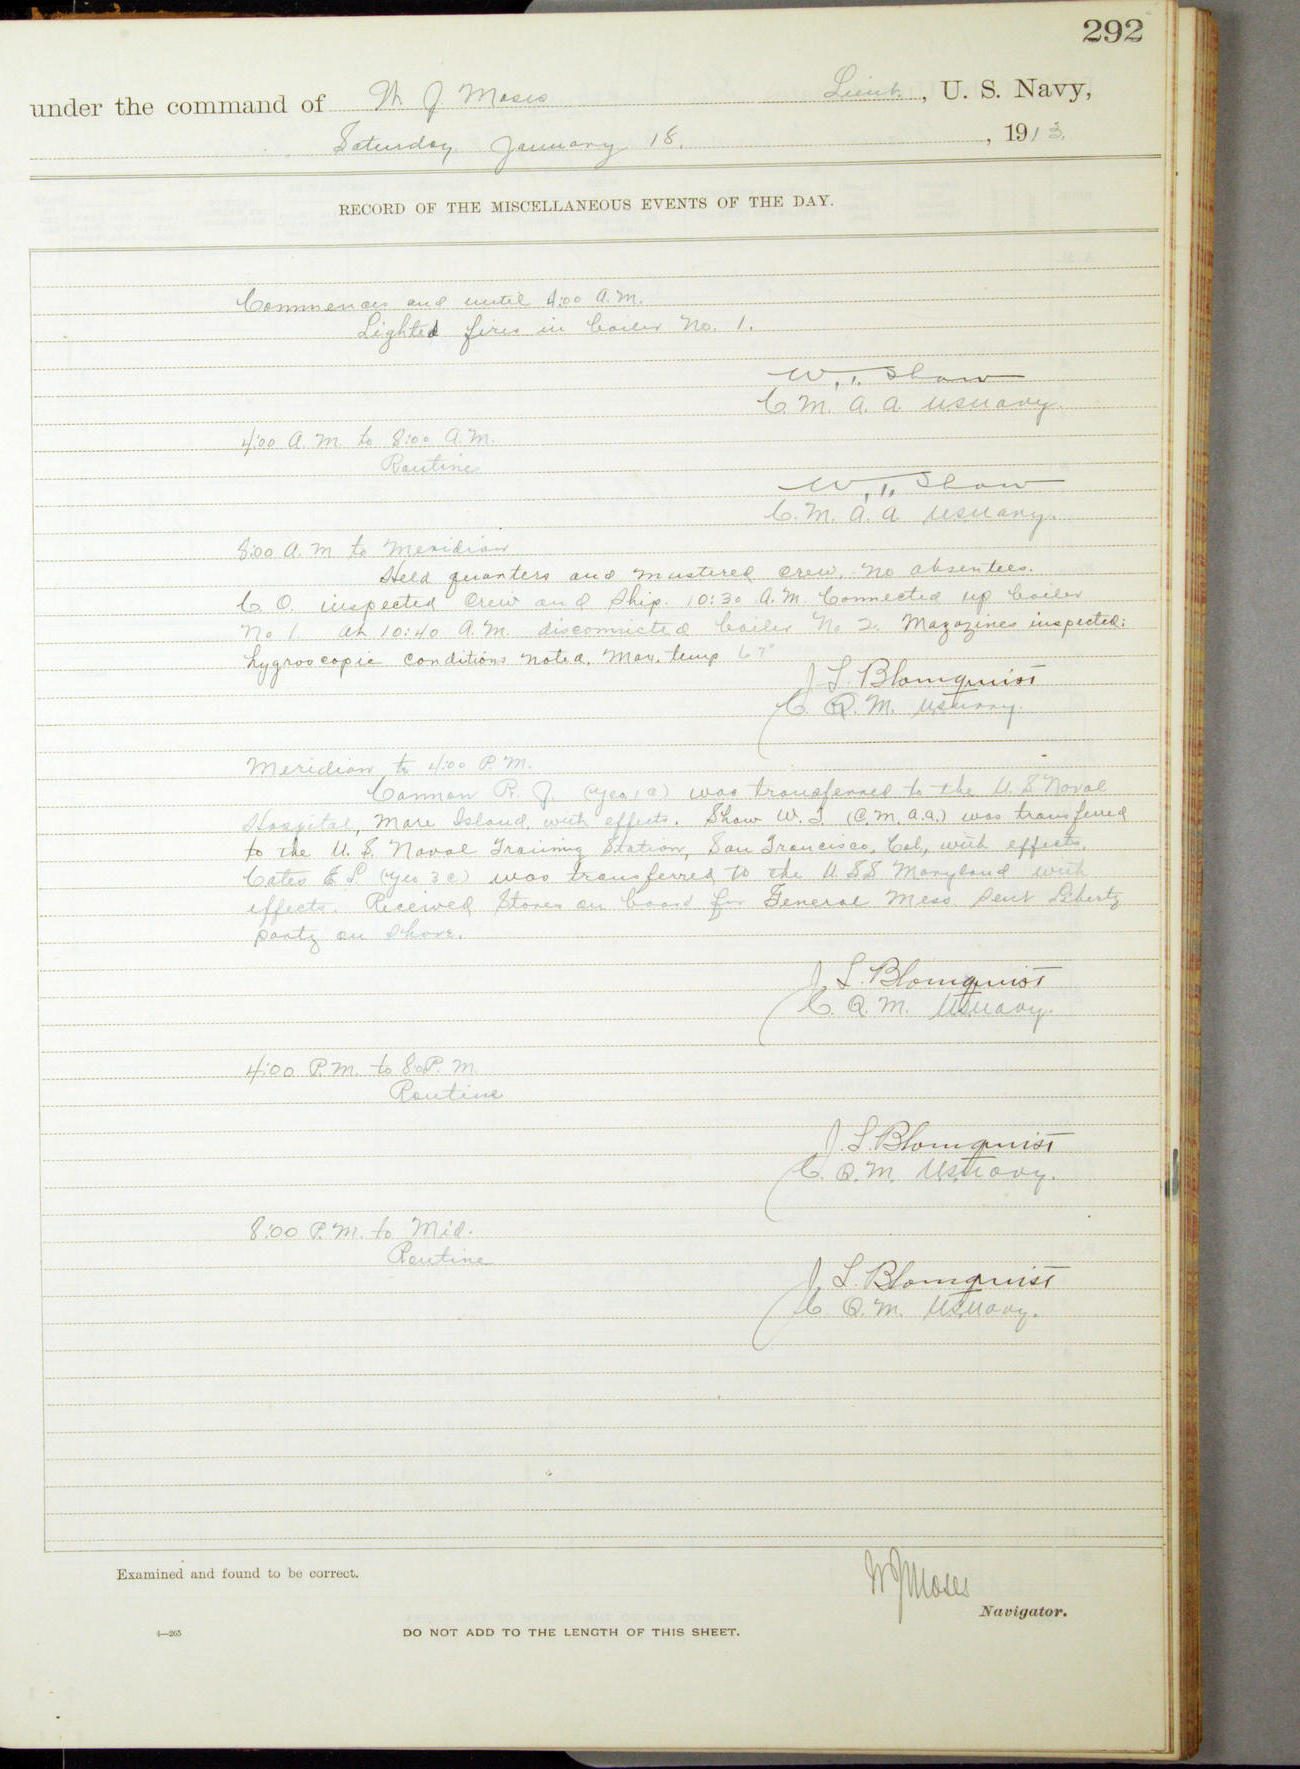 292
under the command of W. J. Moses Lieut., U. S. Navy,
Saturday January 18, 1913.
RECORD OF THE MISCELLANEOUS EVENTS OF THE DAY.
Commences and until 4:00 A.M.
Lighted fires in boiler No. 1.
W. T. Shaw
C. M. A. A. USNavy.
4:00 A.M. to 8:00 A.M.
Routine
W. T. Shaw
C. M. A. A. USNavy.
8:00 A.M. to Meridian
Held quarters and mustered crew. No absentees.
C. O. inspected Crew and Ship. 10:30 A.M. Connected up boiler
No 1. At 10:40 A.M. disconnected boiler No 2. Magazines inspected;
hygroscopic conditions noted. Max. temp 67°
J. L. Blomquist
C. Q. M. USNavy.
Meridian to 4:00 P.M.
Cannon R. J. (Yeo. 1 c) was transferred to the U. S Naval
Hospital, Mare Island, with effects. Shaw W. T. (C.M.A.A.) was transferred
to the U. S. Naval Training Station, San Francisco, Cal., with effects.
Cates E. P (Yeo 3 c) was transferred to the U S S Maryland with
effects. Received Stores on board for General Mess. Sent Liberty
party on Shore.
J. L. Blomquist
C. Q. M. USNavy.
4:00 P.M. to 8:00 P.M.
Routine
J. L. Blomquist
C. Q. M. USNavy.
8:00 P.M. to Mid.
Routine
J. L. Blomquist
C. Q. M. USNavy.
Examined and found to be correct.
W J Moses
Navigator.
4—265
DO NOT ADD TO THE LENGTH OF THIS SHEET.